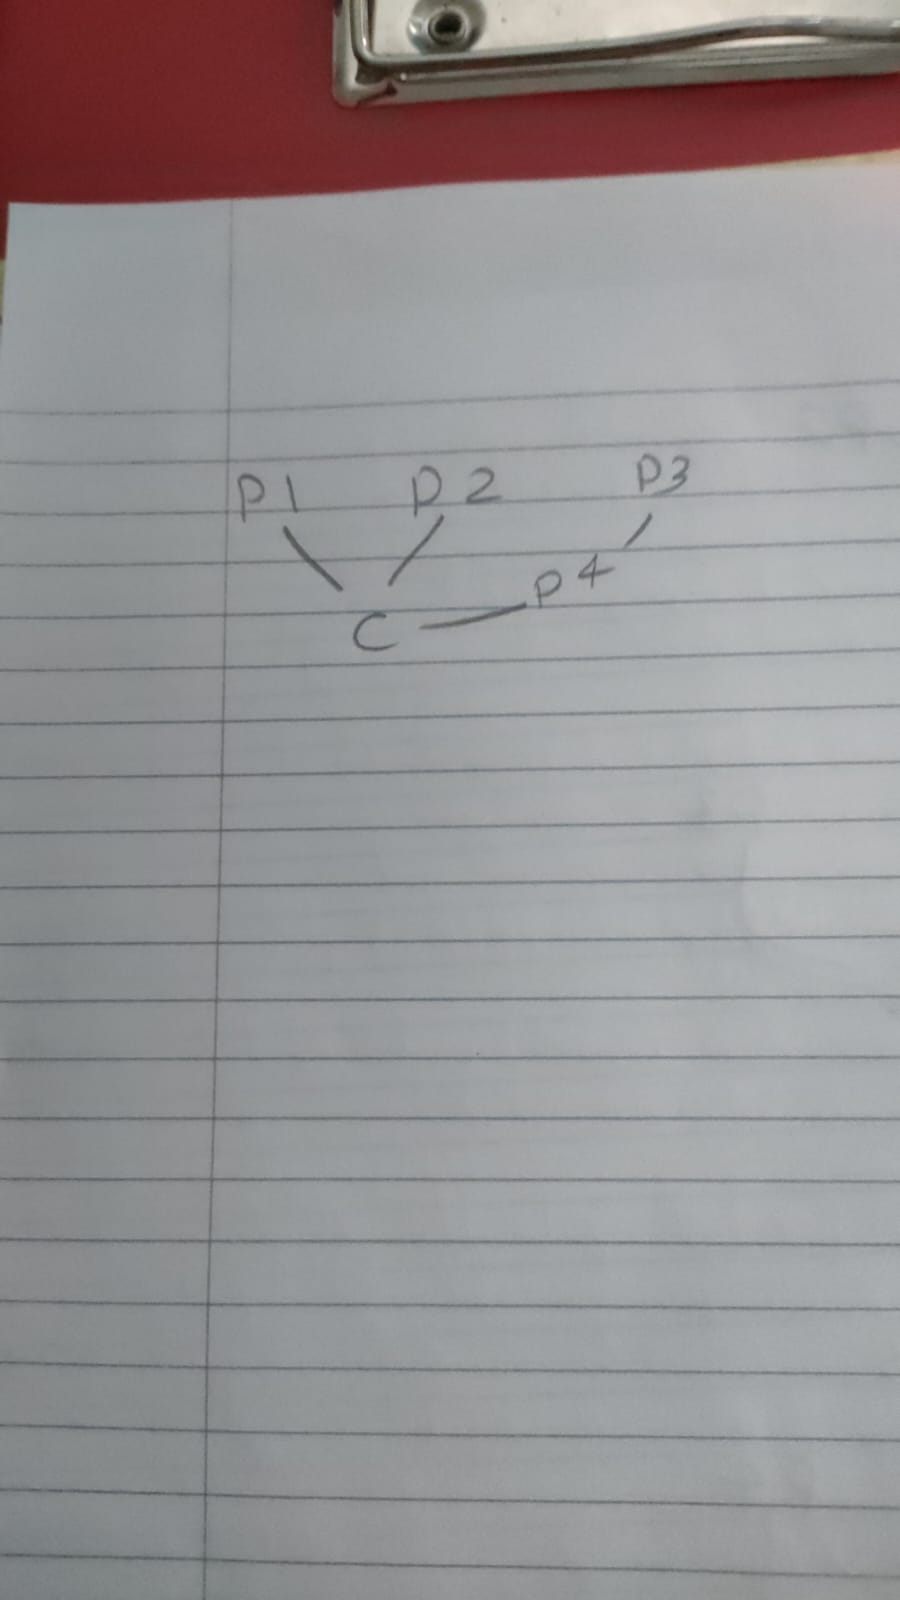 P1 P2 P3
P4
C